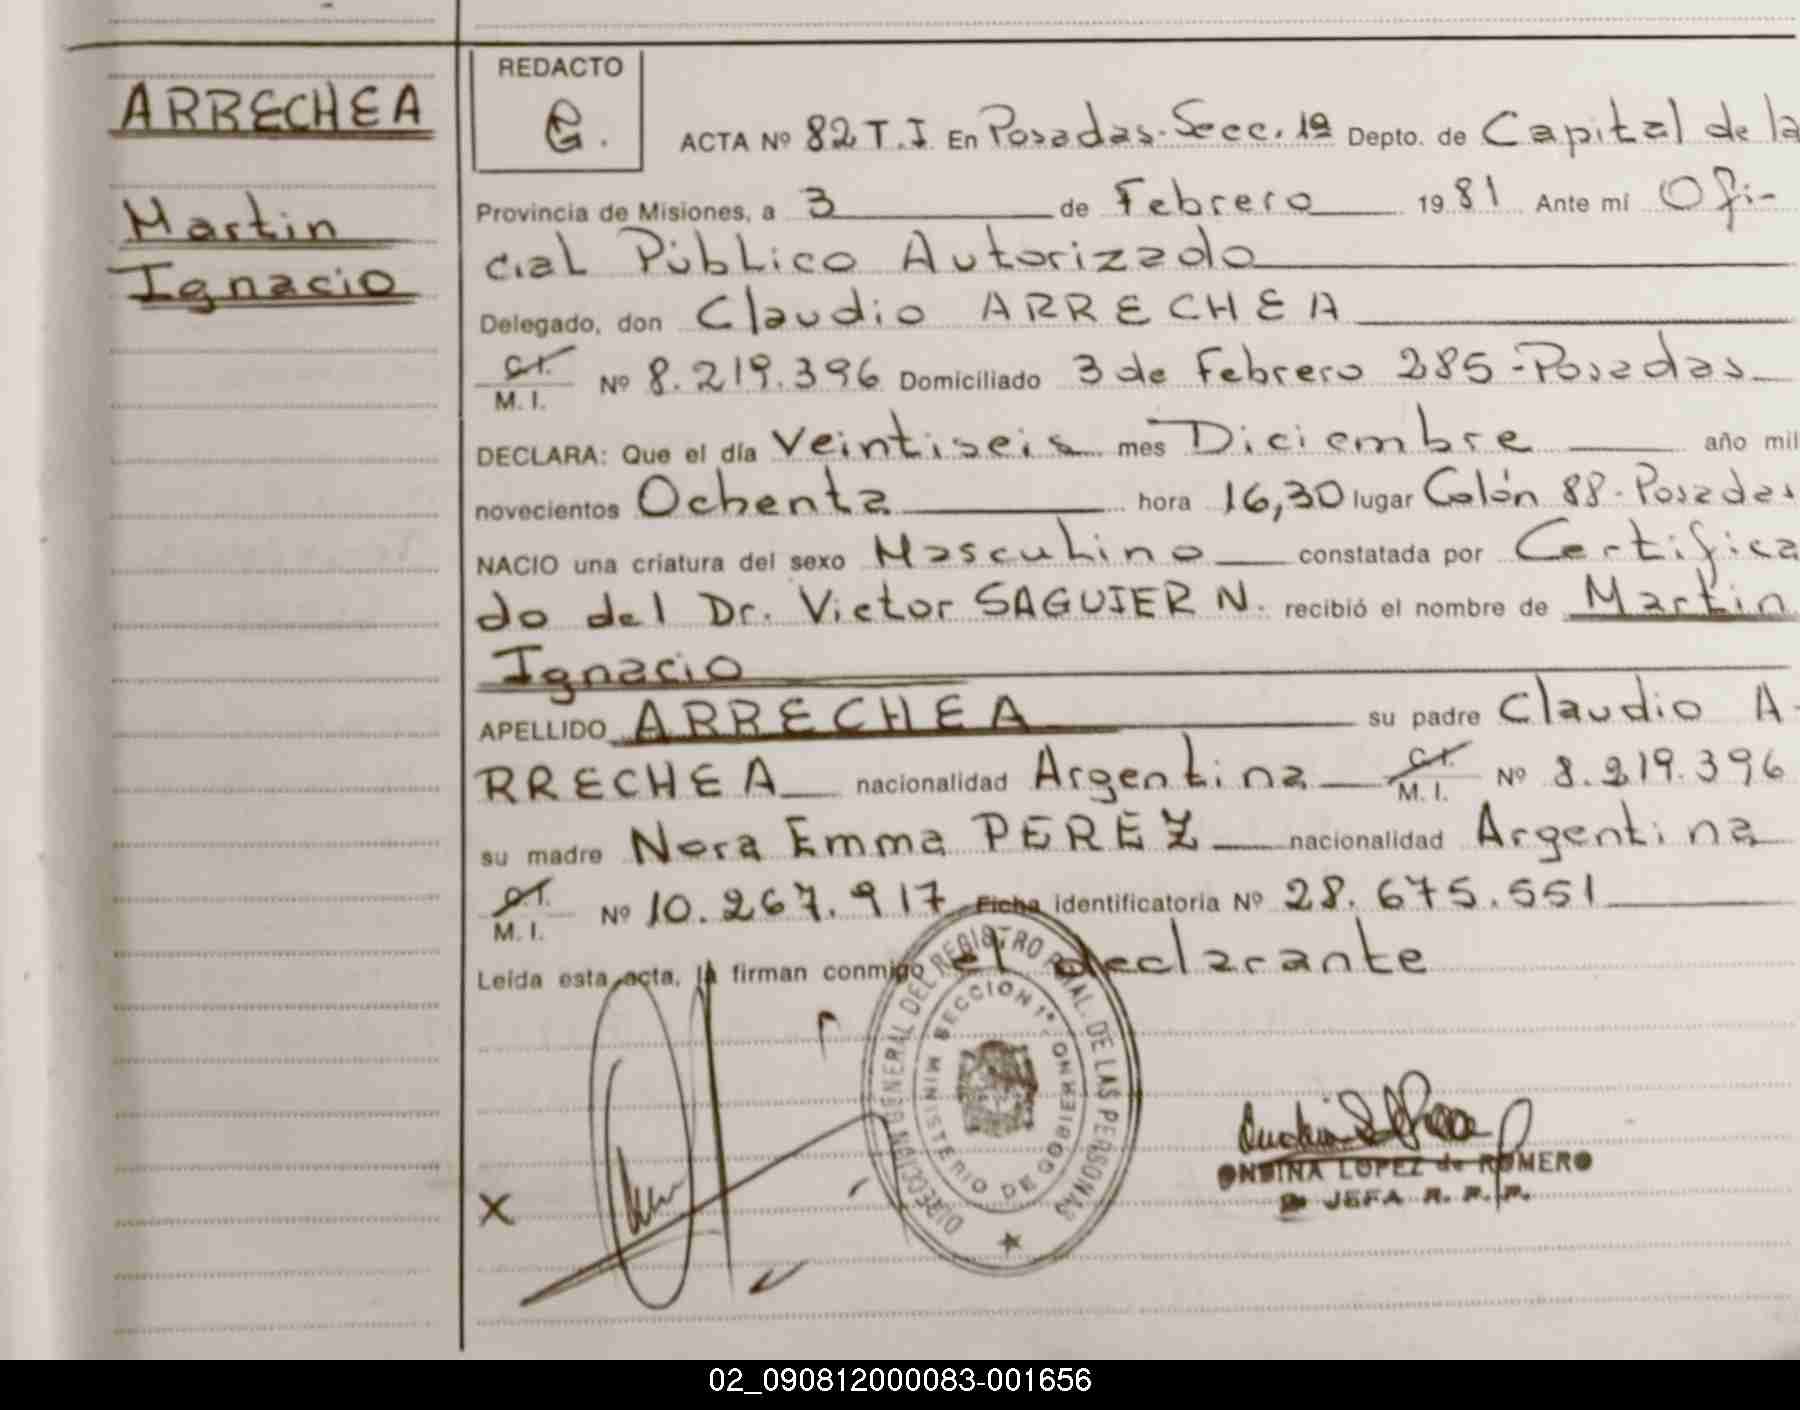 ARRECHEA
Martin
Ignacio
REDACTO
G.
ACTA Nº 82 T.I En Posadas-Secc. 1ª Depto. de Capital de la
Provincia de Misiones, a 3 de Febrero 1981 Ante mí Ofi-
cial Público Autorizado
Delegado, don Claudio ARRECHEA
C.I.
M. I. Nº 8.219.396 Domiciliado 3 de Febrero 285-Posadas
DECLARA: Que el día Veintiseis mes Diciembre año mil
novecientos Ochenta hora 16,30 lugar Colón 88-Posadas
NACIO una criatura del sexo Masculino constatada por Certifica
do del Dr. Victor SAGUIER N. recibió el nombre de Martin
Ignacio
APELLIDO ARRECHEA su padre Claudio A-
RRECHEA nacionalidad Argentina C.I. M. I. Nº 8.219.396
su madre Nora Emma PEREZ nacionalidad Argentina
C.I.
M. I. Nº 10.267.917 Ficha identificatoria Nº 28.675.551
Leída esta acta, la firman conmigo el declarante
DIRECCION GENERAL DEL REGISTRO PCIAL. DE LAS PERSONAS
SECCION 1ª
MINISTERIO DE GOBIERNO
X
ONDINA LOPEZ de ROMERO
JEFA R. P. P.
02_090812000083-001656